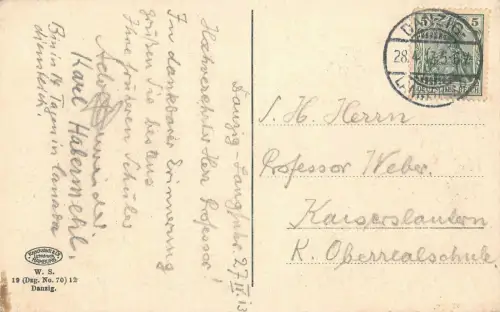 Danzig-Langfuhr 27 IV. 13
Hochverehrter Herr Professor!
In dankbarer Erinnerung
grüßen Sie bestens
Ihre treuen Schüler
Adolf
Karl Habermehl.
Bin in 14 Tagen in Canada
S. H. Herrn
Professor Weber.
Kaiserslautern
K. Oberrealschule.
DANZIG
28.4.13.5-6
5
W. S.
19 (Dzg. No. 70) 12
Danzig.